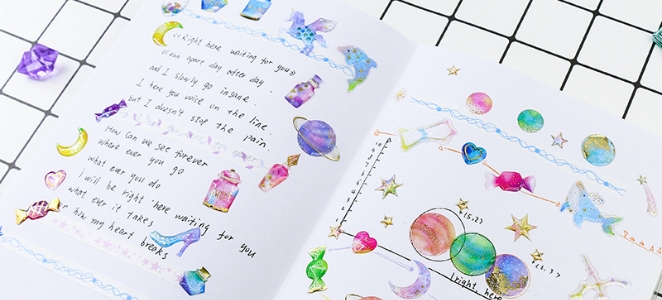 <<Right here waiting for you>>
Ocean apart day after day
and I slowly go insane.
I here you voice on the line.
but I doesn't stop the pain.
How can we see forever
where ever you go
what ever you do
I will be right here waiting for you
what ever it takes
how my heart breaks
Right here